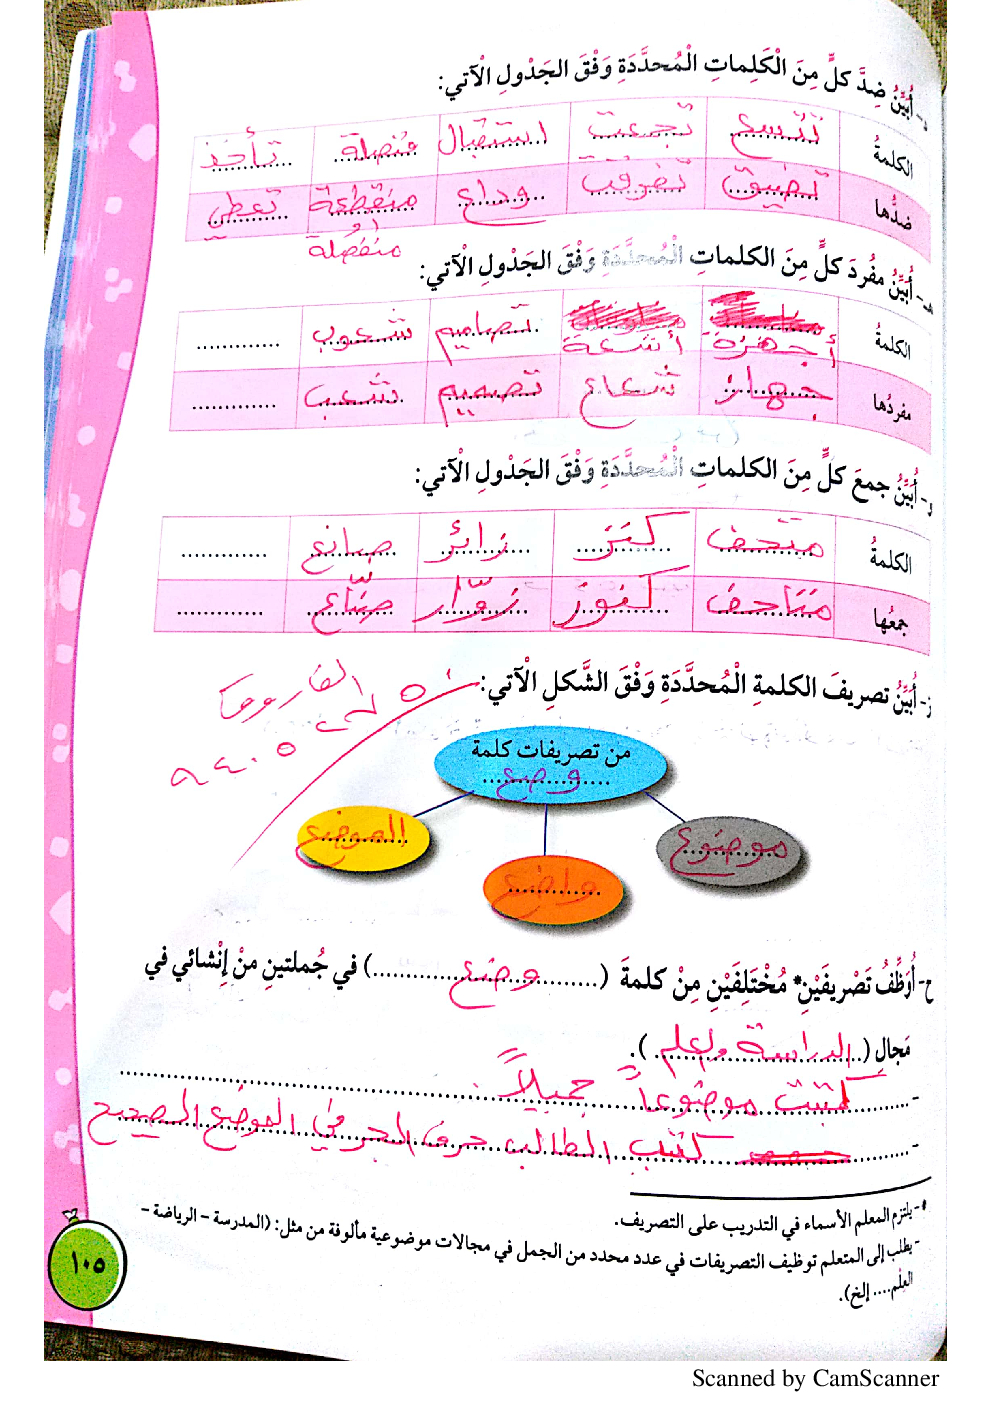 د- أُبَيِّنُ ضِدَّ كلٍّ مِنَ الْكَلِماتِ الْمُحدَّدَةِ وَفْقَ الجَدْولِ الْآتي:
الكلمةُ تتسع تجمعت استقبال متصلة تأخذ
ضدُّها تضيق تفرقت وداع متقطعة تعطي
أو منفصلة
هـ- أُبَيِّنُ مفُردَ كلٍّ مِنَ الكلماتِ الْمُحدَّدَةِ وَفْقَ الجَدْولِ الْآتي:
الكلمةُ أجهزة أشعة تصاميم شعوب
مفردُها جهاز شعاع تصميم شعب
و- أُبَيِّنُ جمعَ كلٍّ مِنَ الكلماتِ الْمُحدَّدَةِ وَفْقَ الجَدْولِ الْآتي:
الكلمةُ متحف كنز زائر صانع
جمعُها متاحف كنوز زوّار صنّاع
ز- أُبَيِّنُ تصريفَ الكلمةِ الْمُحدَّدَةِ وَفْقَ الشَّكلِ الْآتي:
من تصريفات كلمة
وضع
موضوع واضع الموضع
ح- أُوَظِّفُ تَصْريفَيْنِ* مُخْتَلِفَيْنِ مِنْ كلمةَ (وضع) في جُملتينِ منْ إنْشائي في
مَجالِ (الدراسة ولعلم).
- كتبت موضوعاً جميلاً
- كتب الطالب حرف الجر في الموضع الصحيح
* - يلتزم المعلم الأسماء في التدريب على التصريف.
- يطلب إلى المتعلم توظيف التصريفات في عدد محدد من الجمل في مجالات موضوعية مألوفة من مثل: (المدرسة – الرياضة –
العِلْم.... إلخ).
١٠٥
Scanned by CamScanner